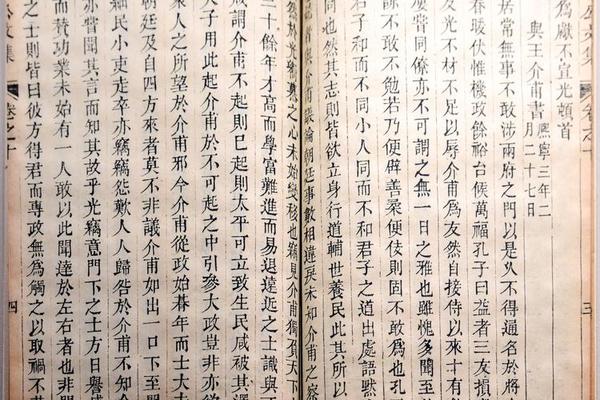 公文集 卷之十 三
為獻不宜光頓首
與王介甫書 熙寧三年二月二十七日
居常無事不敢涉兩府之門以是久不得通名於將
春暖伏惟機政餘裕台候萬福孔子曰益者三友損
友光不材不足以辱介甫為友然自接侍以來十有
屢嘗同僚亦不可謂之無一日之雅也雖愧多聞至
諒不敢不勉若乃便辟善柔便佞則固不敢為也孔
君子和而不同小人同而不和君子之道出處語默
同也然其志則皆欲立身行道輔世養民此其所以
者與介甫議論朝廷事數相違戾未知介甫之察
然於光嚮慕之心未始變移也竊見介甫獨負天下
三十餘年才高而學富難進而易退遠近之士識與
咸謂介甫不起則已起則太平可立致生民咸被其澤
天子用此起介甫於不可起之中引參大政豈非亦欲
眾人之所望於介甫邪今介甫從政始朞年而士大夫
朝廷及自四方來者莫不非議介甫如出一口下至閭
細民小吏走卒亦竊竊怨歎人人歸咎於介甫不知介
亦嘗聞其言而知其故乎光竊意門下之士方日譽盛
而贊功業未始有一人敢以此聞達於左右者也非門
之士則皆曰彼方得君而專政無為觸之以取禍不
文集 卷之十 四